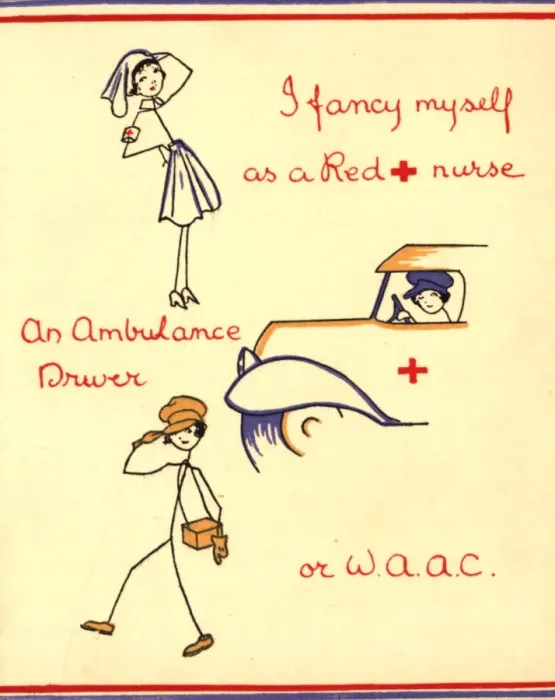 I fancy myself
as a Red + nurse
An Ambulance
Driver
or W.A.A.C.